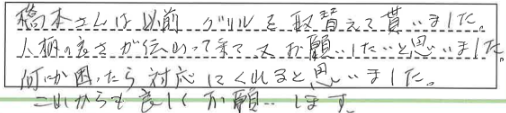 橋本さんは以前 グリルを取替えて貰いました。
人柄の良さが伝わって来て又お願いしたいと思いました。
何か困ったら対応してくれると思いました。
これからも宜しくお願いします。